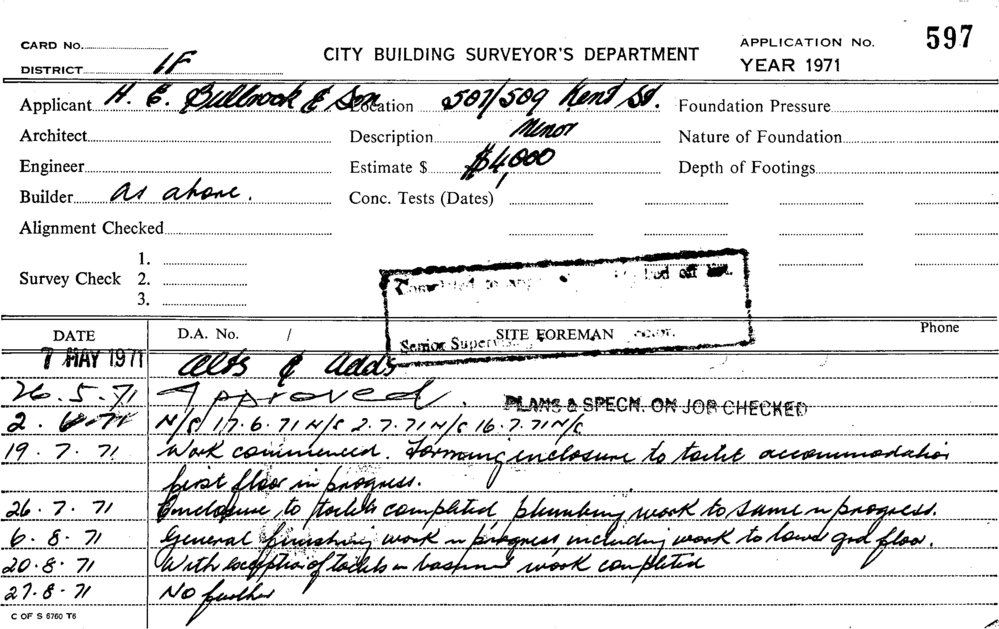 CARD No. APPLICATION No. 597
DISTRICT 1F CITY BUILDING SURVEYOR'S DEPARTMENT YEAR 1971
Applicant H. E. Bullrook & Son Location 507/509 Kent St. Foundation Pressure
Architect Description Minor Nature of Foundation
Engineer Estimate $ $4,000 Depth of Footings
Builder As above. Conc. Tests (Dates)
Alignment Checked
1.
Survey Check 2.
3.
off
Senior
DATE D.A. No. / SITE FOREMAN Phone
7 MAY 1971 Alts & Adds
26.5.71 Approved. PLANS & SPECN. ON JOB CHECKED
2.6.71 N/C 17.6.71 N/C 2.7.71 N/C 16.7.71 N/C
19.7.71 Work commenced. Forming enclosure to toilet accommodation
first floor in progress.
26.7.71 Enclosure to toilets completed plumbing work to same in progress.
6.8.71 General finishing work in progress including work to lower grd floor.
20.8.71 With exception of toilets in basement work completed
27.8.71 No further
C OF S 6760 T6